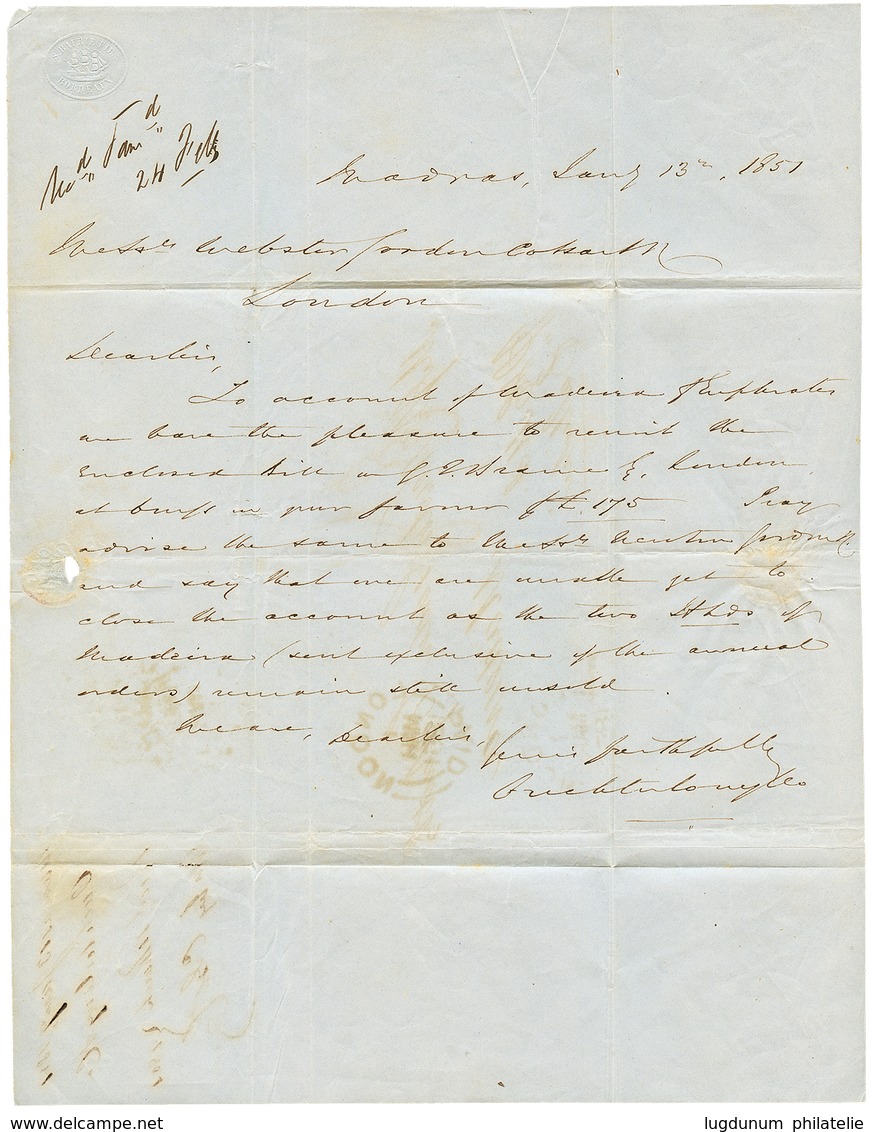 BORDEAUX
24 Feb
Madras, Jany 13th, 1851
Messrs Webster Gordon Cossart &
London
Dear Sirs,
To account of Madeira p Euphrates
we have the pleasure to remit the
enclosed Bill on G. T. Braine Esq, London
at in your favour of £175 Pray
advise the same to Messrs Newton Gordon &
and say that we are unable yet to
close the account as the two Hhds of
Madeira (sent exclusive of the annual
orders) remain still unsold.
We are, Dear Sirs,
Yours faithfully
Ouchterlony & Co
PAID
www.delcampe.net
lugdunum philatelie